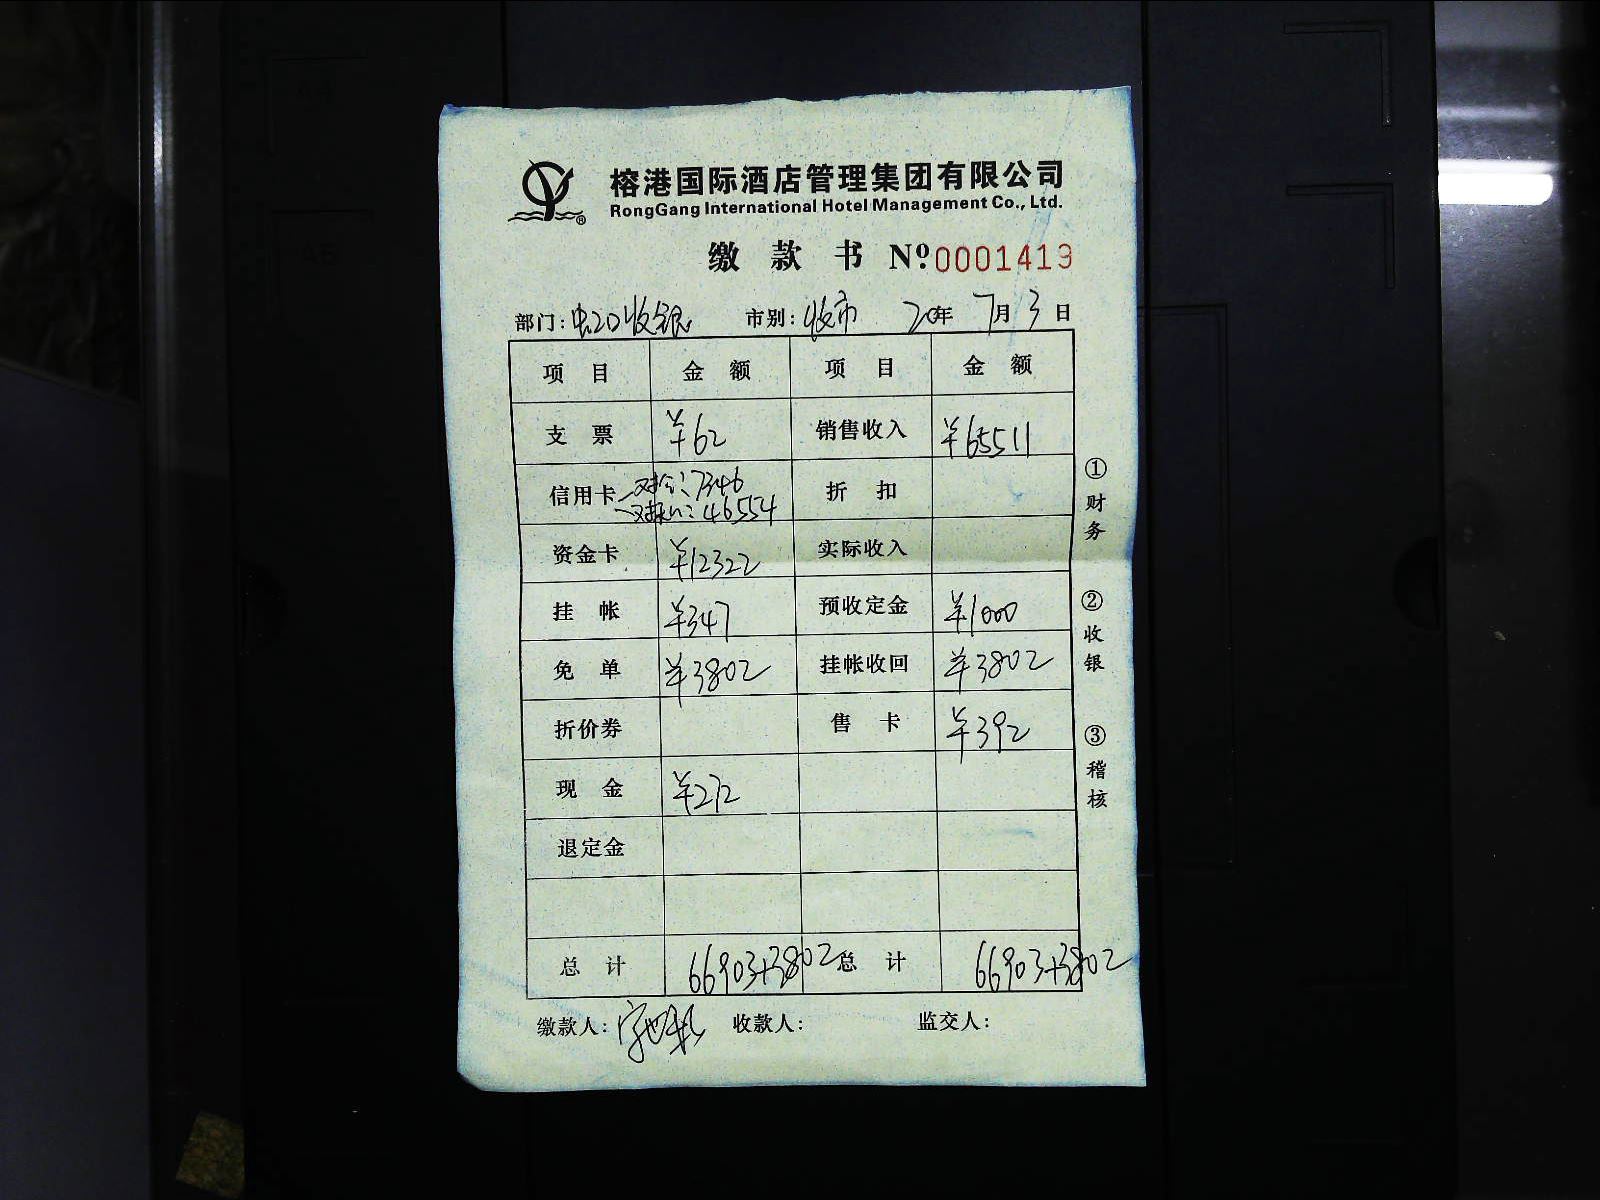 榕港国际酒店管理集团有限公司
RongGang International Hotel Management Co., Ltd.
缴款书 Nº 0001413
部门: 收银 市别: 收市 20年 7月 3日
项目 金额 项目 金额
支票 ¥62 销售收入 ¥65511
信用卡 : 7346 折扣
: 46554
资金卡 ¥12322 实际收入
挂帐 ¥347 预收定金 ¥1000
免单 ¥3802 挂帐收回 ¥3802
折价券 售卡 ¥392
现金 ¥272
退定金
总计 66903+3802 总计 66903+3802
缴款人: 收款人: 监交人:
①财务
②收银
③稽核